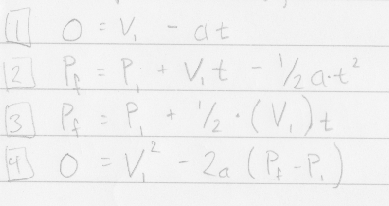 1 0 = V₁ - at
2 P_f = P₁ + V₁t - 1/2 a·t²
3 P_f = P₁ + 1/2 · (V₁) t
4 0 = V₁² - 2a (P_f - P₁)